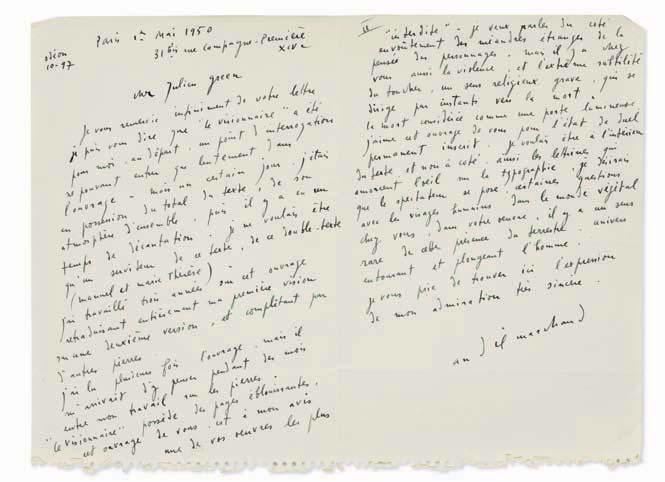 Paris 1er Mai 1950
odéon
10-97
31 bis rue Campagne-Première
XIVe
cher Julien Green
je vous remercie infiniment de votre lettre
je puis vous dire que "le visionnaire" a été
pour moi, au départ, un point d'interrogations
ne pouvant entrer que lentement dans
l'ouvrage - mais un certain jour j'étais
en possession du total du texte, de son
atmosphère d'ensemble, puis il y a eu un
temps de décantation. je ne voulais être
qu'un serviteur de ce texte, de ce double-texte
(manuel et marie thérèse).
j'ai travaillé trois années sur cet ouvrage
retraduisant entièrement ma première vision
en une deuxième version, et complétant par
d'autres pierres.
j'ai lu plusieurs fois l'ouvrage. mais il
m'arrivait d'y penser pendant des mois
entre mon travail sur les pierres.
"le visionnaire" possède des pages éblouissantes,
cet ouvrage de vous est à mon avis
une de vos oeuvres les plus
II
"interdite" - je veux parler du côté
envoûtement des méandres étranges de la
pensée des personnages, mais il y a chez
vous aussi la violence, et l'extrême subtilité
du toucher, un sens religieux, grave, qui se
dirige par instants vers la mort,
la mort considérée comme une porte lumineuse.
j'aime cet ouvrage de vous pour l'état de duel
permanent inscrit. je voulais être à l'intérieur
du texte et non à côté. aussi les lettrines qui
amorcent l'oeil sur la typographie, je désirais
que le spectateur se pose certaines questions
avec les visages humains dans le monde végétal
chez vous, dans votre oeuvre, il y a un sens
rare de cette présence du terrestre. univers
entourant et plongeant l'homme.
je vous prie de trouver ici l'expression
de mon admiration très sincère.
andré marchand